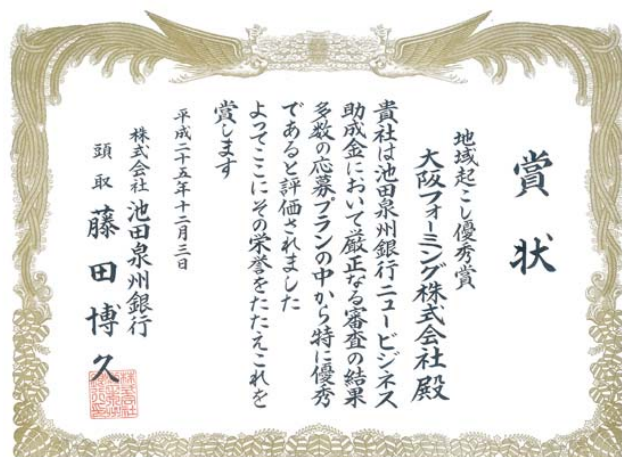 賞状
地域起こし優秀賞
大阪フォーミング株式会社殿
貴社は池田泉州銀行ニュービジネス
助成金において厳正なる審査の結果
多数の応募プランの中から特に優秀
であると評価されました
よってここにその栄誉をたたえこれを
賞します
平成二十五年十二月三日
株式会社池田泉州銀行
頭取藤田博久